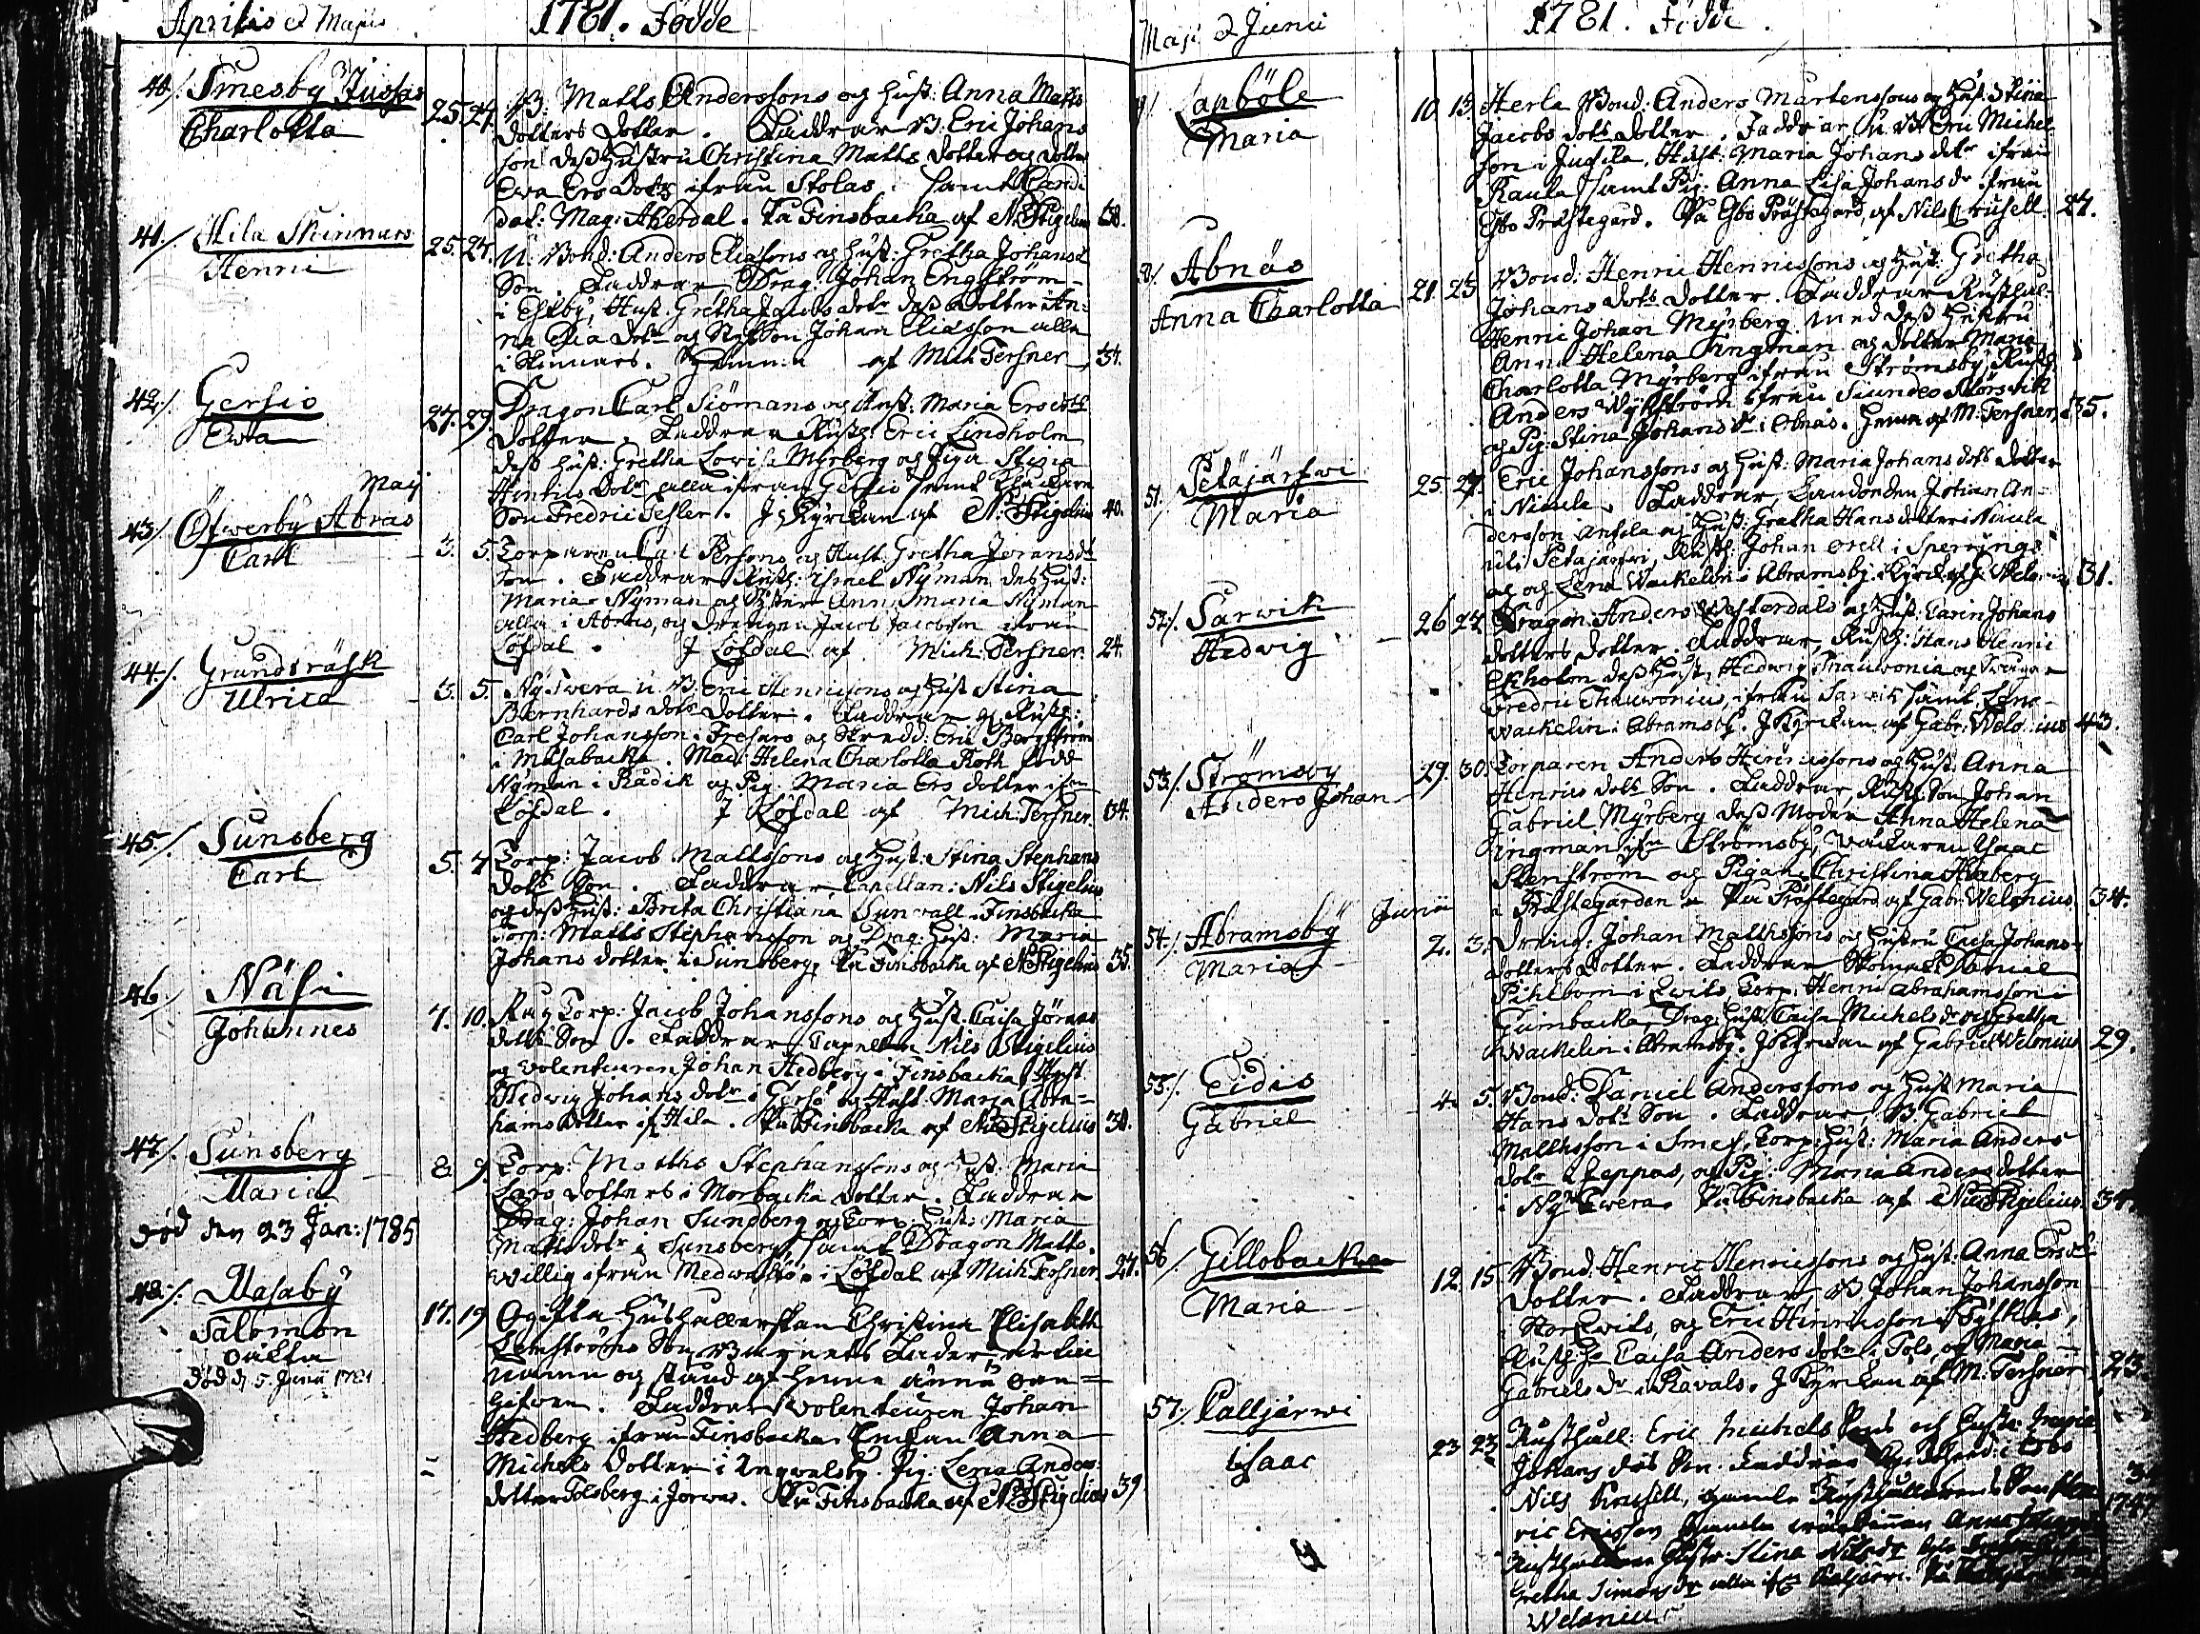 Aprilis et Majus
1781. Födde
40/. Smesby Jussas
Charlotta
25 27. B: Matts Anderssons og Hust: Anna Matts
dotters Dotter. Faddrar B. Eric Johans
son dess Hustru Christina Matts dotter og dotter
Ewa Ers dotr ifrån Stolas. samt Candi
dat: Mag: Akerdal. På Finsbacka af N: Stigelius 38.
41/. Hila Skinnars
Henric
25. 27. U. Bond: Anders Eliasons og Hust: Gretha Johansd
Son. Faddrar Drag: Johan Engström
i Estby, Hust. Gretha Jacobs dotr dess Dotter An=
na Caisa dotr og Son Johan Eliasson alla
i Skinnars. Hemma af Mich Tersner 34.
42/. Gersio
Ewa
27. 29. Dragon Carl Siömans og Hust: Maria Ers dotrs
Dotter. Faddrar Rusth: Eric Lindholm
dess Hust: Gretha Lovisa Myrberg og Pigan Stina
Henrics dotr alla ifrån Gersio samt Klåckare
Son Fredric Tesler. I Kyrckan af N: Stigelius 40.
Maij
43/. Öfwerby Abras
Carl
3. 5. Torparen Carl Persons og Hust. Gretha Joransdr
Son. Faddrar Rusth: Ismel Nyman des Hust:
Maria Nyman og Syster Anna Maria Nyman
alla i Abras, og Drengen Jacob Jacobson ifrån
Löfdal. I Löfdal af Mich Tersner. 24.
44/. Grundsräsk
Ulrica
3. 5. Ny Swera U. B: Eric Henricsons og Hust Stina
Bernhards dotr Dotter. Faddrar Rusth:
Carl Johansson i Fresars og Skredd: Eric Bergström
i Masabacka. Mad: Helena Charlotta Roth född
Nyman i Rådik og Pig. Maria Ers dotter ifrn
Löfdal. I Löfdal af Mich: Tersner. 34.
45/. Sunsberg
Carl
5. 7 Torp: Jacob Mattssons og Hust: Stina Stephans
dotr Son. Faddrar Capellan: Nils Stigelius
og dess Hust: Brita Christiana Sunwall Finsbacka
Torp: Matts Stephansson og Drag: Hus: Maria
Johans dotter i Sunsberg. På Finsbacka af N Stigelius 35.
46/. Näsi
Johannes
7. 10. Torp: Jacob Johanssons og Hust. Caisa Jörans
dotrs Son. Faddrar Capellan Nils Stigelius
og volenteuren Johan Hedberg i Finsbacka Hust
Hedwig Johans dotr i Gersö og Hust: Maria Abra=
hams dotter if Hila. På Finsbacka af Nils Stigelius 38.
47/. Sunsberg
Maria
död den 23 Jan: 1785
8 9. Torp: Matths Stephanssons og Hust: Maria
Lars dotters i Morbacka dotter. Faddrar
Drag: Johan Sundberg og Torp: Hust: Maria
Matts dotr i Sunsberg, samt Dragon Matts
Willig ifrån Medwastö i Löfdal af Mich Tersner. 27.
48/. Masaby
Salomon
oäkta
död d 5. Junii 1781
17. 19 Ogifta Hushållerskan Christina Elisabeth
Lenströms Son, Barnets Fader
namn og stånd af henne ännu oan=
gifven. Faddrar volenteuren Johan
Hedberg ifrån Finsbacka. Enkan Anna
Michels Dotter i Yngwelsby. Pig: Lena Anders
dotter Tolsberg i Jorwas. På Finsbacka af N: Stigelius 39
Maji et Junii
1781. Födde.
Lapböle
Maria
10 13. Herla Bond: Anders Martenssons og Hus. Stina
Jacobs dotrs Dotter. Faddrar U. B Eric Michel
son i Jussila. Hust. Maria Johans dotr ifrån
Raula samt Pig: Anna Lisa Johans dr ifrån
Esbo Prästegård. På Esbo Prästegård af Nils Crusell. 27.
Abnäs
Anna Charlotta
21 23 Bond: Henric Henricssons og Hust: Gretha
Johans dotrs Dotter. Faddrar Rusthål=
Henric Johan Myrberg med dess Hustru
Anna Helena Tingman og dotter Maria
Charlotta Myrberg ifrån Strömsby, Rusth:
Anders Wykström ifrån Siundeo Störsvik
og Pig: Stina Johans dr i Obnäs. Hemma af M: Tersner, 35.
51/. Petäjärfwi
Maria
25. 27. Eric Johanssons og Hust: Maria Johans dotrs dotter
i Nimla. Faddrar, Landbonden Johan An=
dersson Antila og Hust: Gretha Hans dotter i Nimla
Petäjärfwi, Rusth: Johan Orell i Sperrings
og Lena Wackelin i Abramsby. i Kyrck af G. Welonius 31.
52/. Sarwik
Hedvig
26 27. Dragon Anders Westerdals og Hust: Carin Johans
dotters Dotter. Faddrar, Rusth: Hans Henric
Ekholm dess Hust. Hedwig Thauwonia og Drengen
Fredric Thauwonius, ifrån Sarvik samt Lena
Wackelin i Abramsby. I Kyrckan af Gabr. Welonius 43.
53/. Strömsby
Anders Johan
29. 30. Torparen Anders Henricssons og Hust. Anna
Henrics dotrs Son. Faddrar, Rusth Son Johan
Gabriel Myrberg dess Moder Anna Helena
Tingman ifrn Strömsby, Wäfvaren Isaac
Stenström og Pigan Christina Haberg
i Prästegården. På Prästegård af Gabr. Welonius. 34.
Junii
54/. Abramsby
Maria
2. 3. Dreng: Johan Matthssons og Hustru Caisa Johans
dotters Dotter. Faddrar Skomak: Daniel
Pihlbom i Qwits, Torp: Henric Abrahamsson i
Gumbacka, Drag: Hust: Caisa Michels dr og Gretha
Wackelin i Abramsby. I Kyrckan af Gabriel Welonius 29.
55/. Eidis
Gabriel
4. 5. Bond: Daniel Anderssons og Hust Maria
Hans dotrs Son. Faddrar, B. Gabriel
Matthsson i Smes, Torp: Hust: Maria Anders
dotr Qeppas, og Pig: Maria Anders dotter
i Ny Swera. På Finsbacka af Nils Stigelius. 34.
56/. Gillobackan
Maria
12. 15. Bond: Henric Henricssons og Hust: Anna Ers dotrs
Dotter. Faddrar B Johan Johansson
i Stor Qwits, og Eric Henricsson i Fyskas,
Rusth: H. Caisa Anders dotr i Tols, og Maria
Gabriels dr i Ravals. I Kyrckan af M. Tersner. 23.
57/. Calljärwi
Isaac
23 23 Rusthåll: Eric Michels Sons och Hustr: Maria
Johans dotr Son. Faddrar i Esbo
Nils Crusell, gamle Rusthållarens Son Hen
ric Ericsson gamla
Rusthållare Hustr: Stina Nils dr
Gretha Simons dr alla ifn
Welonius